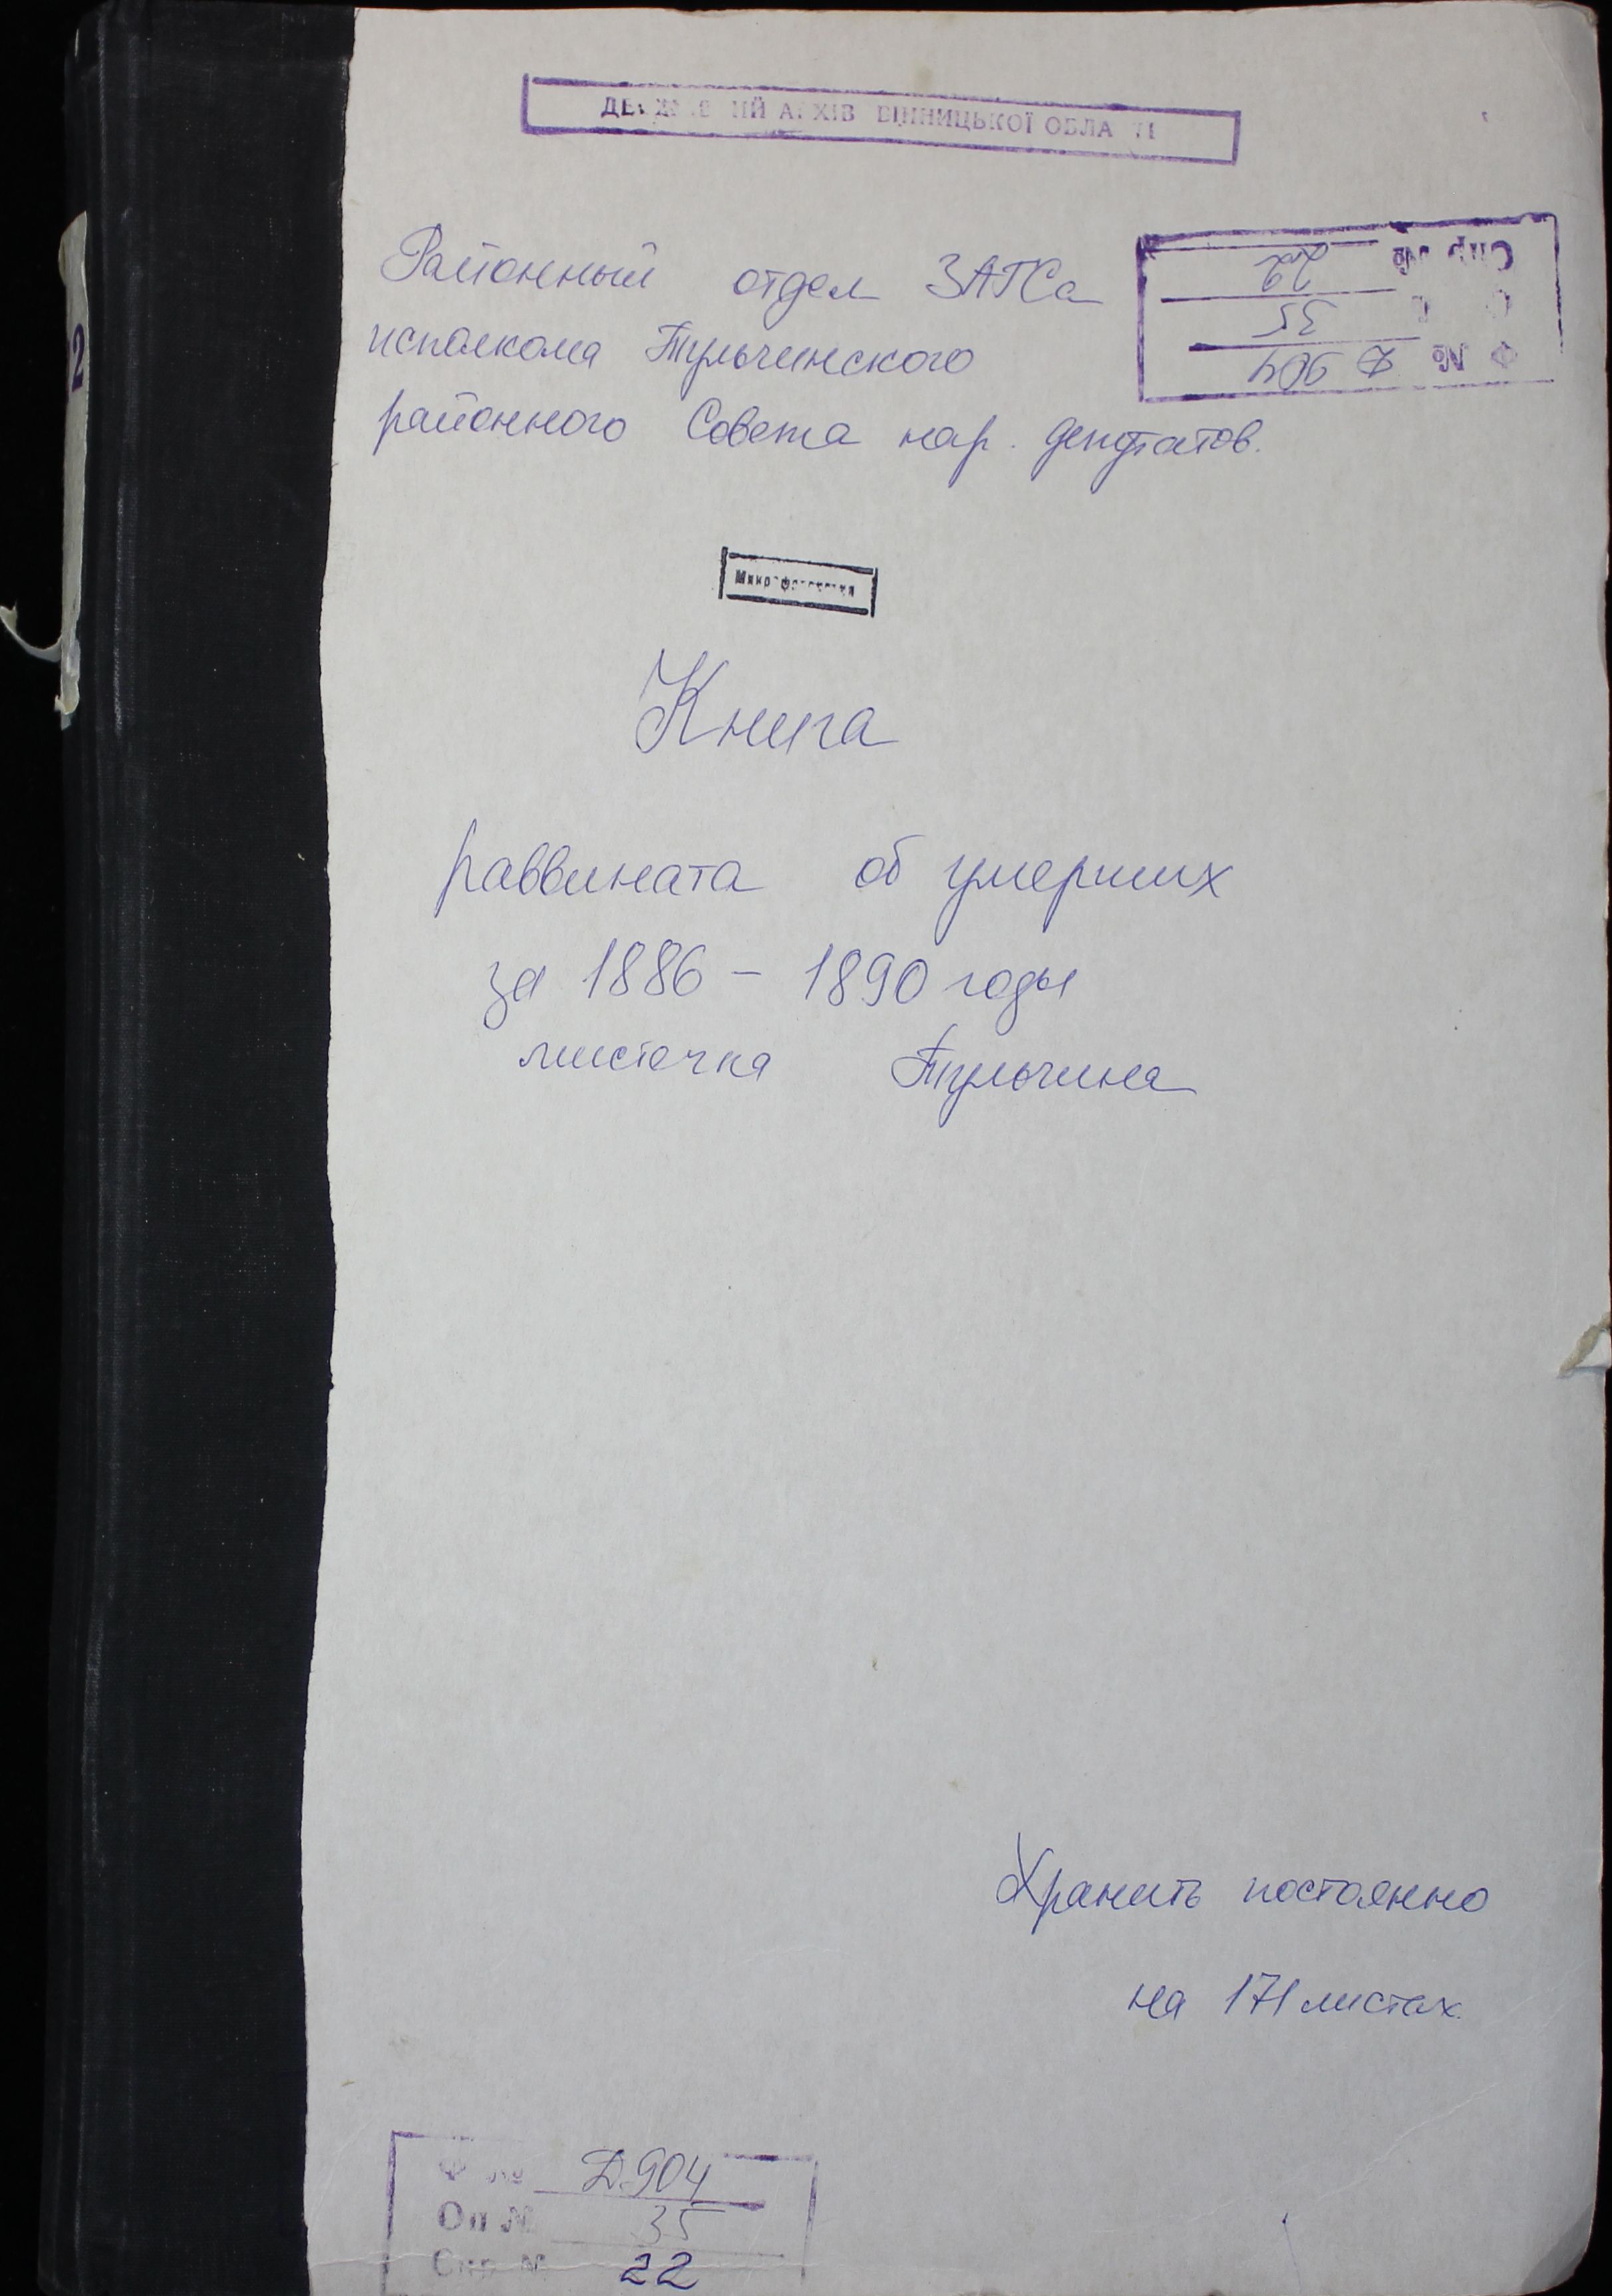 ДЕРЖАВНИЙ АРХІВ ВІННИЦЬКОЇ ОБЛАСТІ
Районный отдел ЗАГСа
исполкома Тульчинского
районного Совета нар. депутатов.
Ф № Д 904
35
Спр № 22
2
Книга
раввината об умерших
за 1886 - 1890 годы
местечка Тульчина
Хранить постоянно
на 171 листах.
Ф № Д-904
Оп № 35
Спр № 22